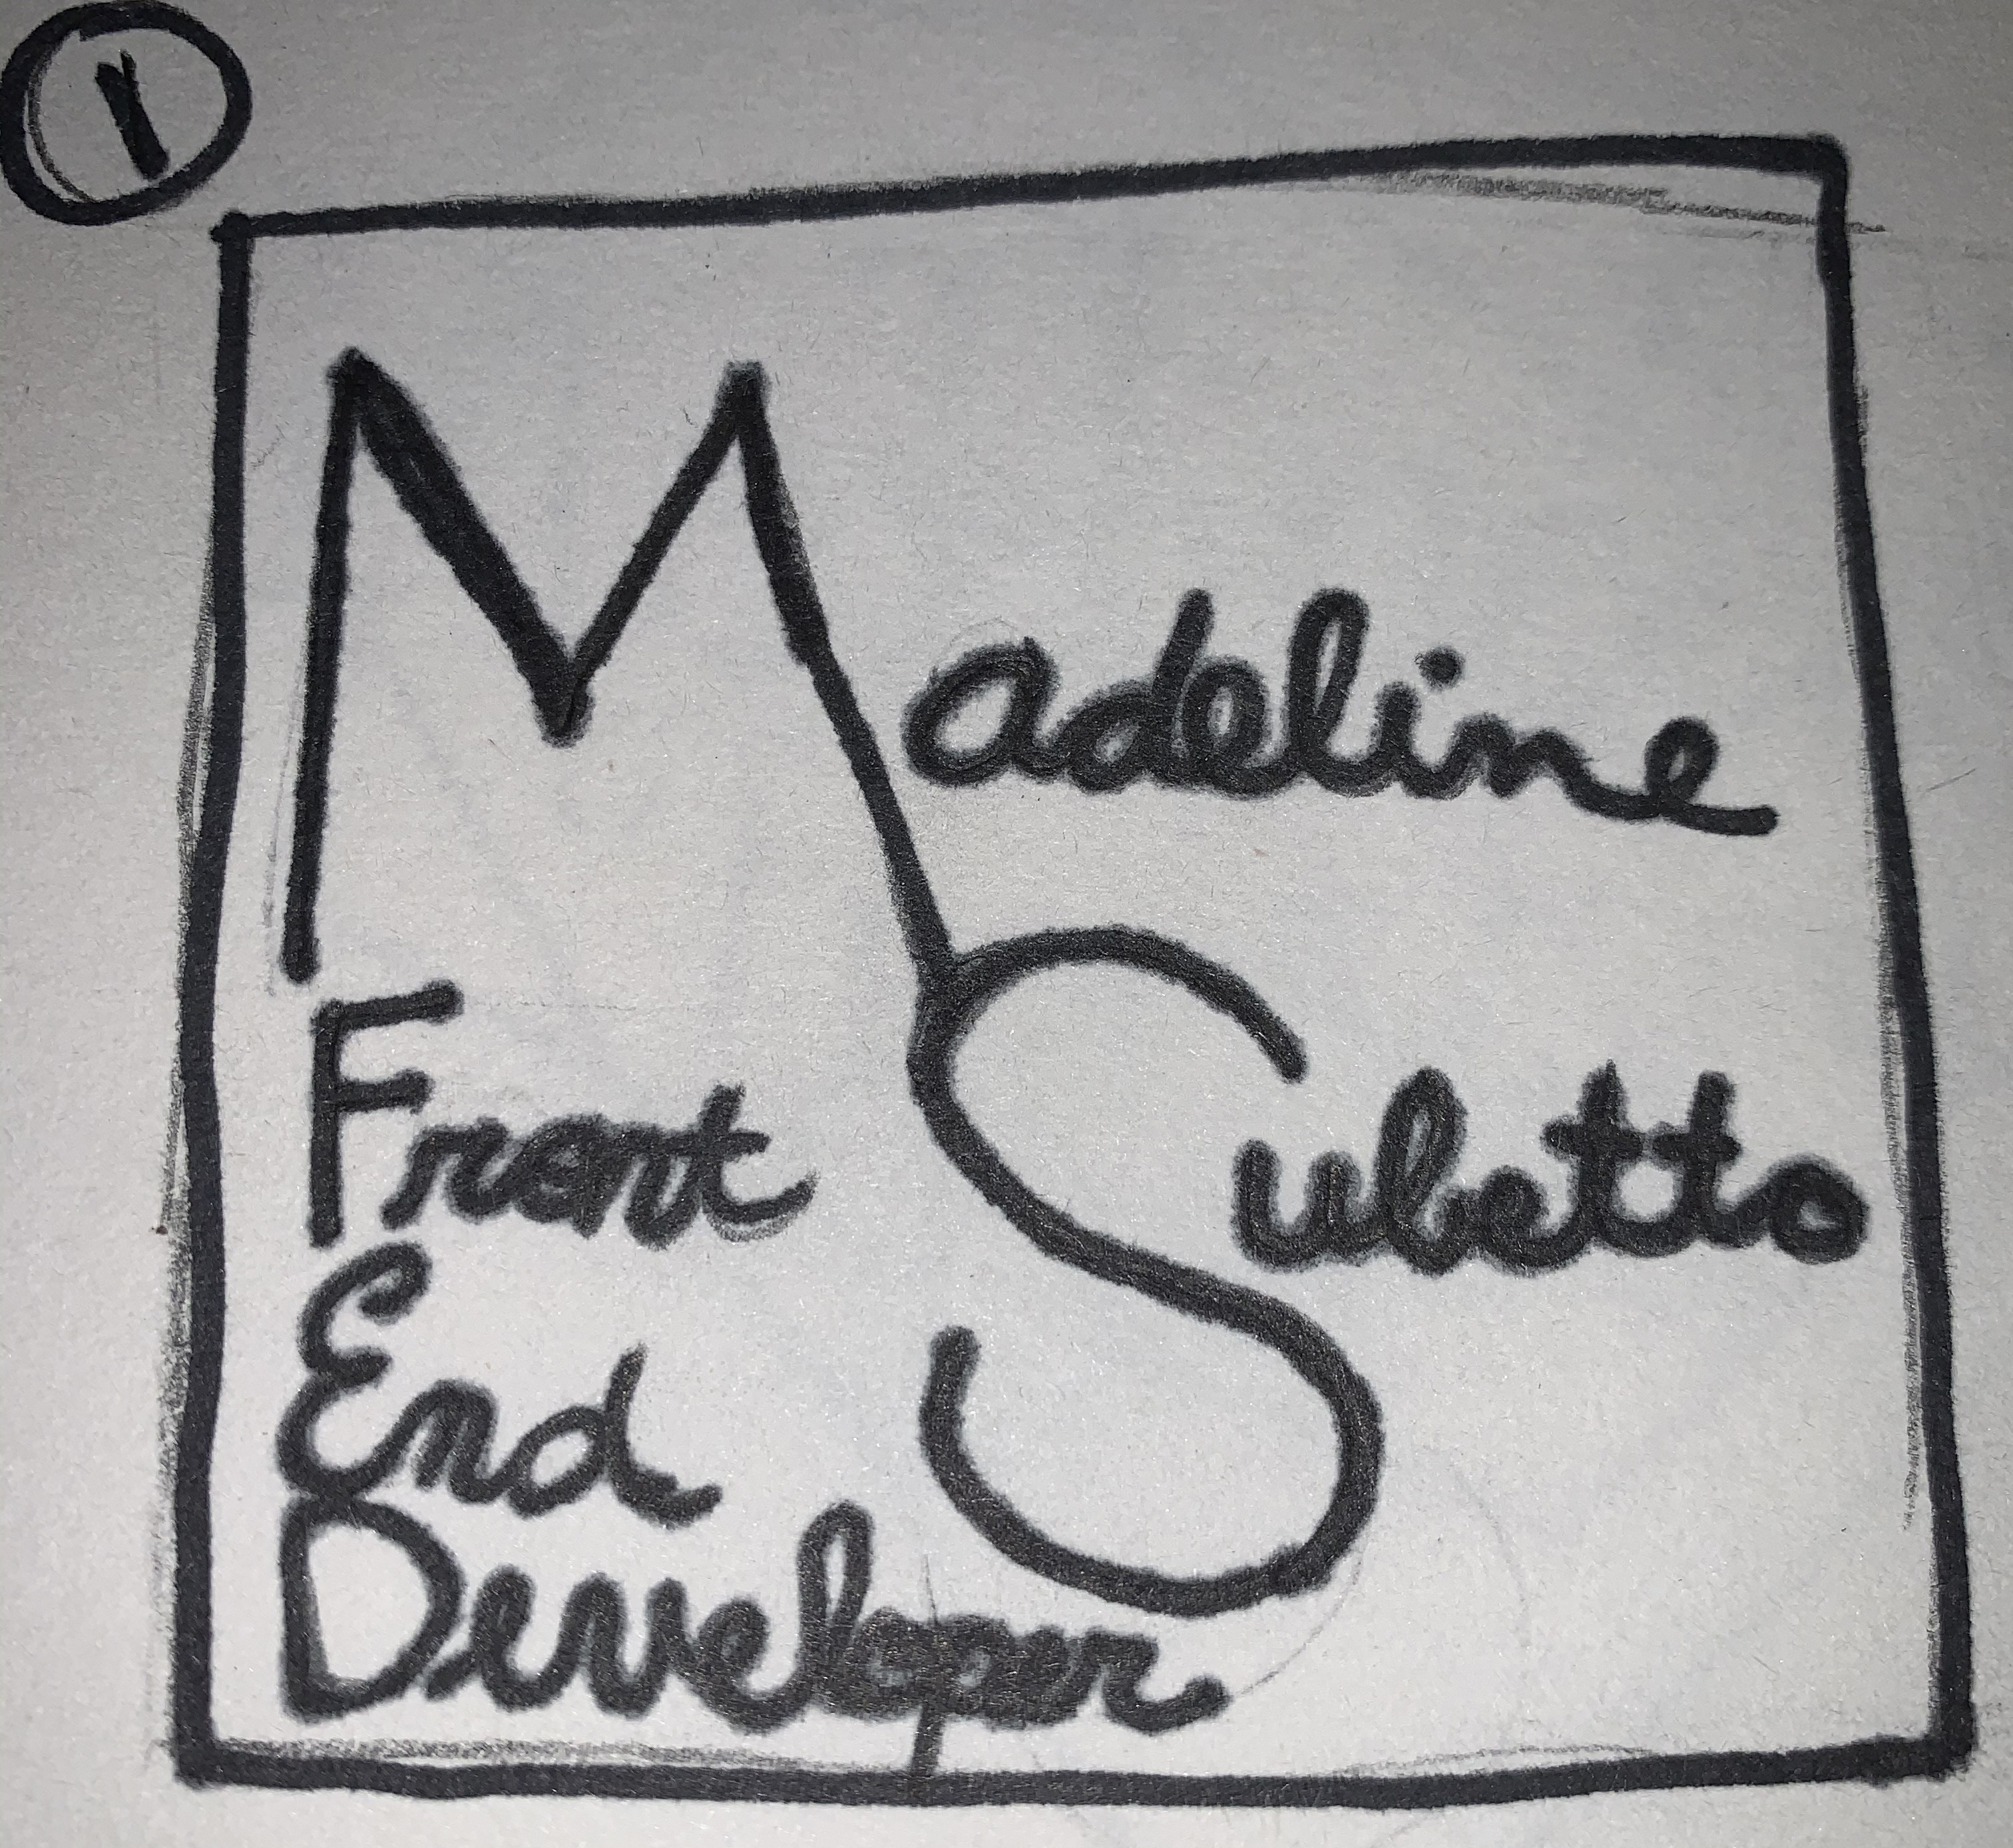 1
Madeline
Subetto
Front
End
Developer